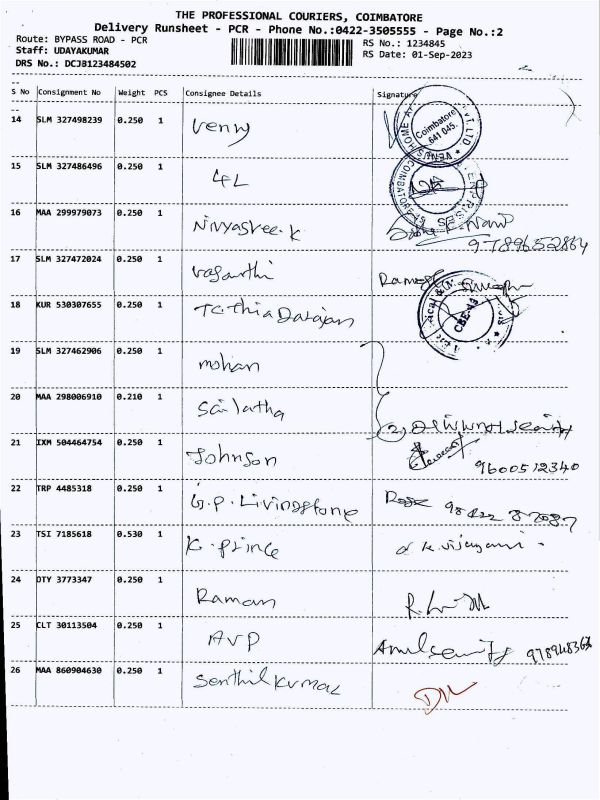 THE PROFESSIONAL COURIERS, COIMBATORE
Delivery Runsheet - PCR - Phone No.:0422-3505555 - Page No.:2
Route: BYPASS ROAD - PCR RS No.: 1234845
Staff: UDAYAKUMAR RS Date: 01-Sep-2023
DRS No.: DCJB123484502
S No Consignment No Weight PCS Consignee Details Signature
14 SLM 327498239 0.250 1 Venny
Coimbatore 641 045.
15 SLM 327486496 0.250 1 4L
16 MAA 299979073 0.250 1 Nivyasree.K
9789652864
17 SLM 327472024 0.250 1 Vasanthi Ramesh
18 KUR 530307655 0.250 1 Tathia Darajan
CBE-43
19 SLM 327462906 0.250 1 mohan
20 MAA 298006910 0.210 1 Sailatha
21 IXM 504464754 0.250 1 Johnson 9600512340
22 TRP 4485318 0.250 1 G.P. Livingstone
23 TSI 7185618 0.530 1 K. prince
24 OTY 3773347 0.250 1 Raman
25 CLT 30113504 0.250 1 AVP
26 MAA 860904630 0.250 1 Senthil Kumar